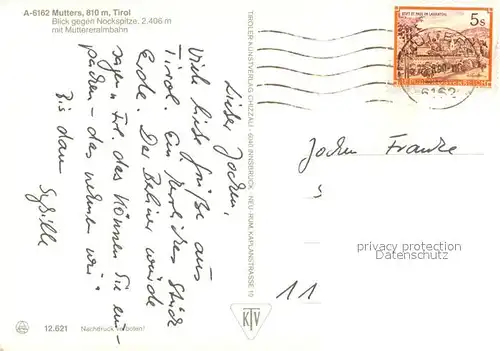 A-6162 Mutters, 810 m, Tirol
Blick gegen Nockspitze, 2.406 m
mit Muttereralmbahn
Lieber Jochen,
Viele liebe Grüße aus
Tirol. Ein herrliches Stück
Erde. Der Berliner würde
sagen „Frl. das können Sie ein-
packen - das nehmen wir"
Bis dann
Sybille
12.621 Nachdruck verboten!
TIROLER KUNSTVERLAG CHIZZALI · 6040 INNSBRUCK, NEU-RUM, KAPLANSTRASSE 10
KTV
5s
STIFT ST. PAUL IM LAVANTTAL
REPUBLIK ÖSTERREICH
6162
Jochen Franke
privacy protection
Datenschutz
11